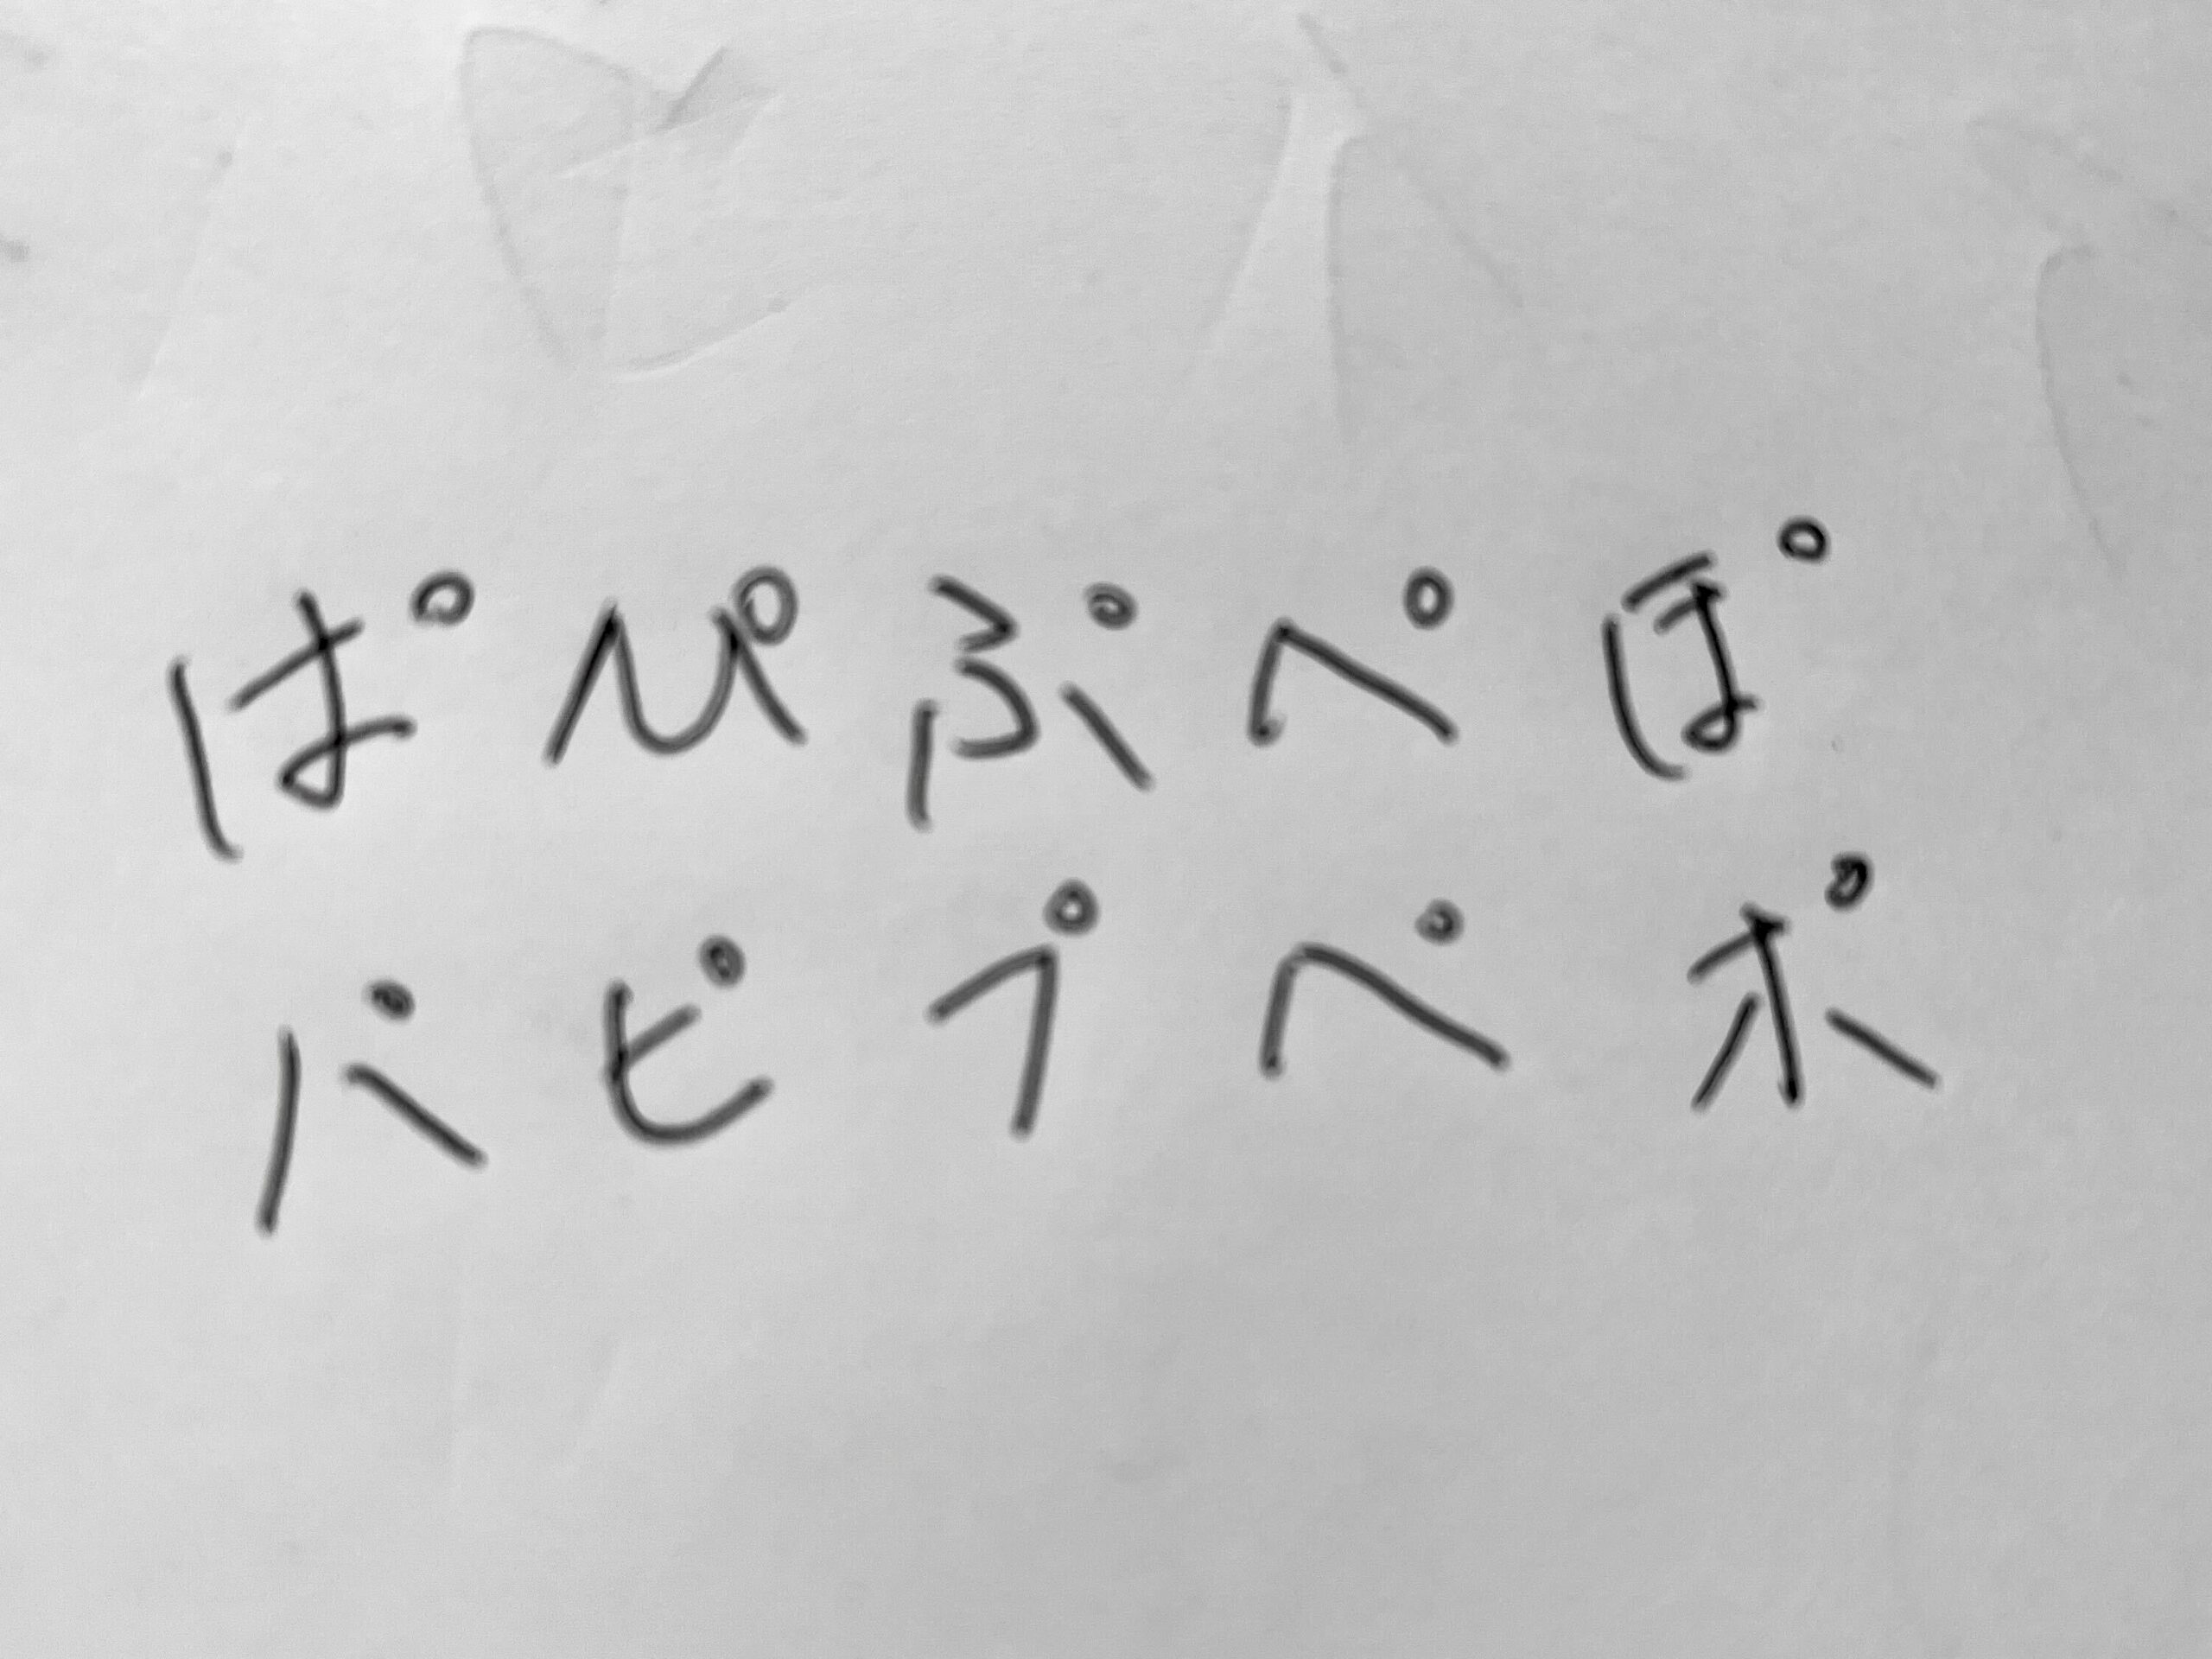 ぱぴぷぺぽ
パピプペポ